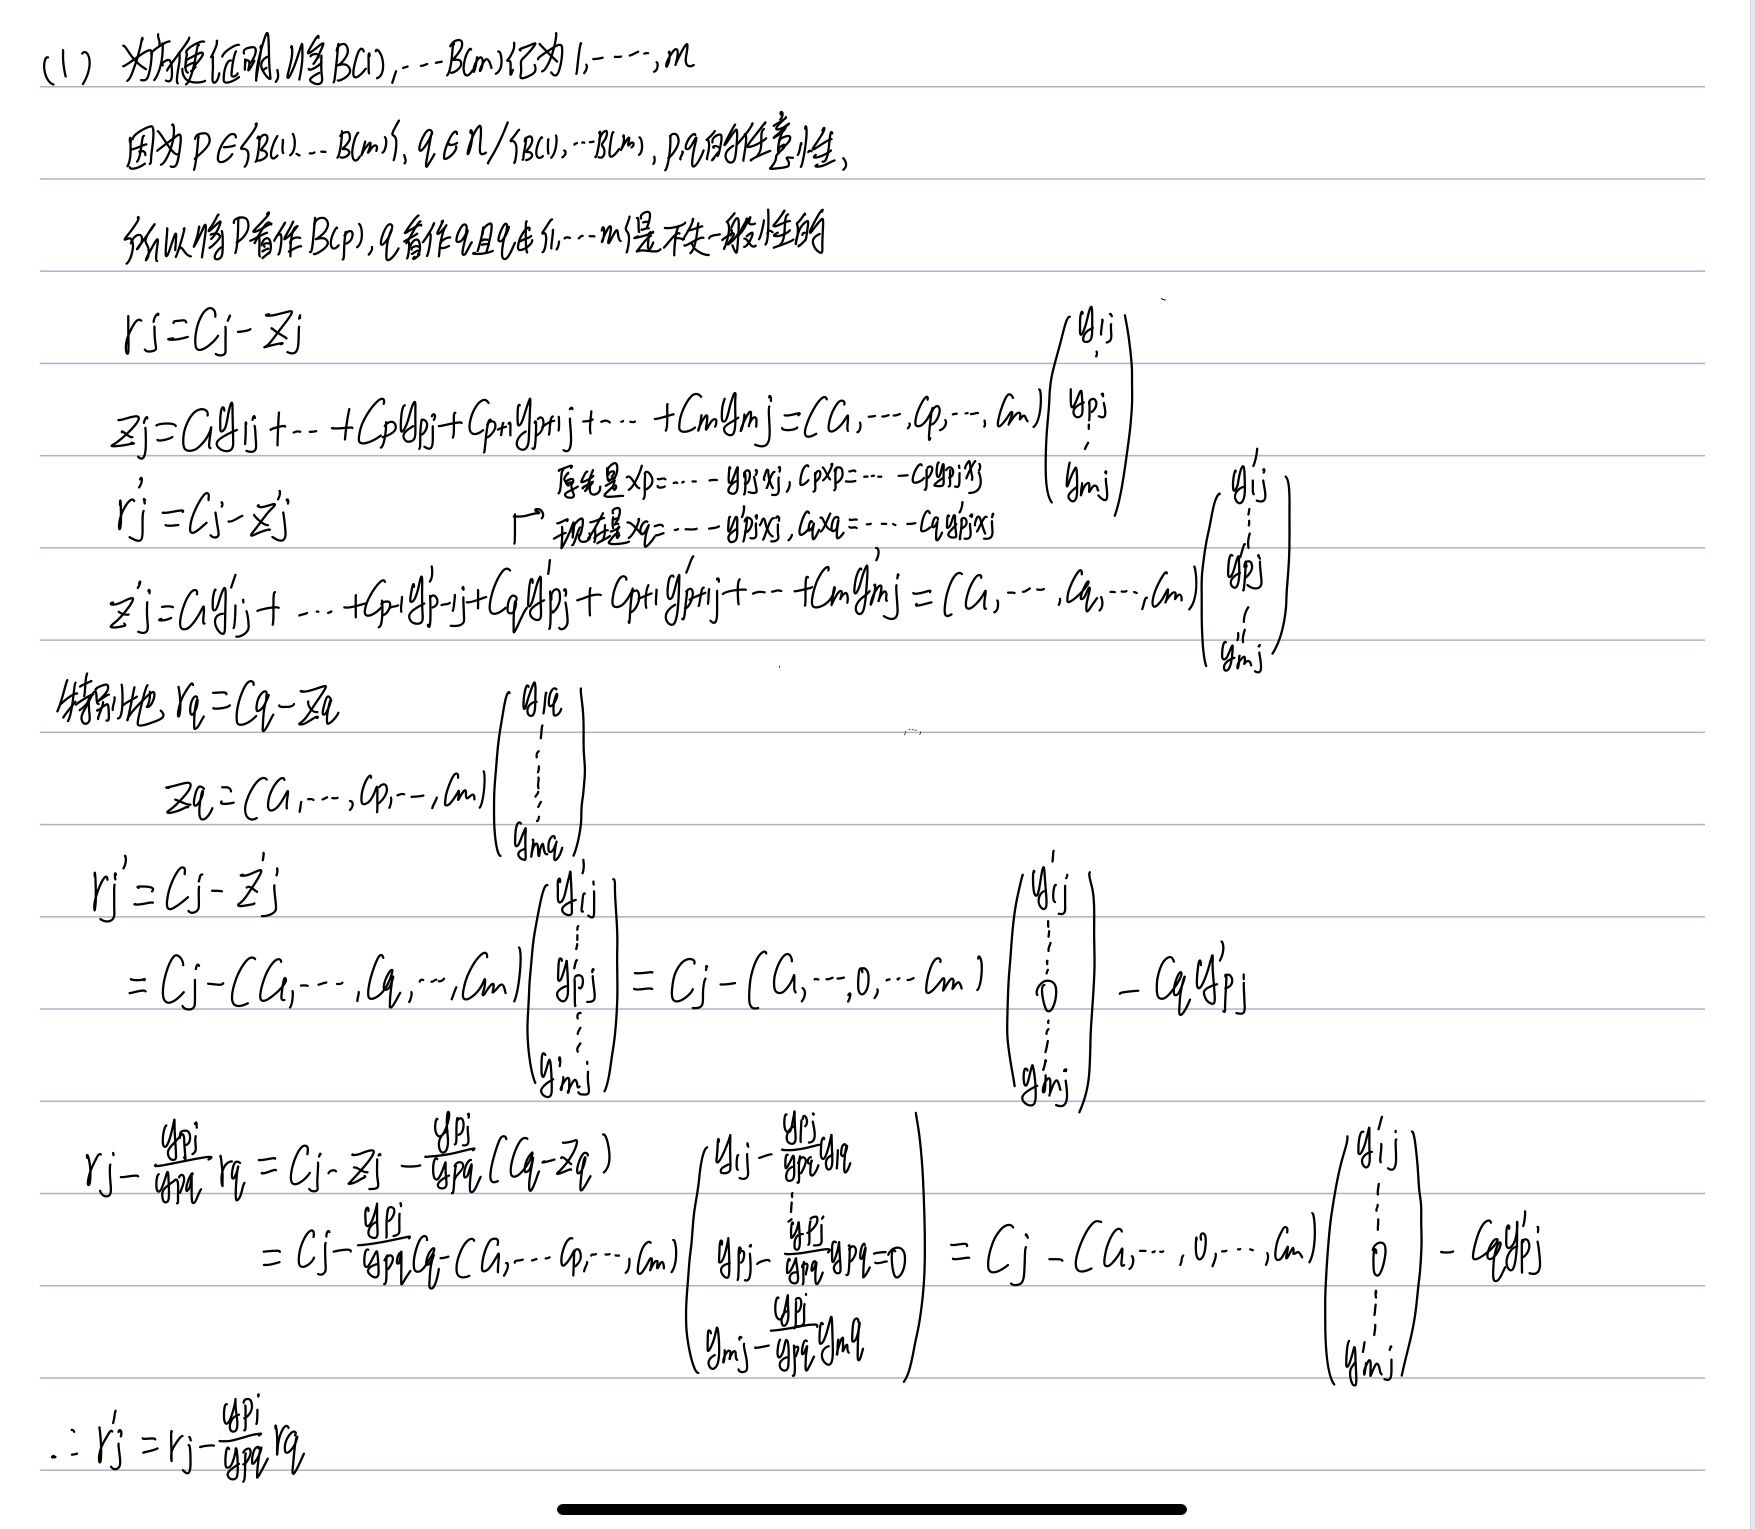 (1) 为方便证明,将B(1),…B(m)记为1,…,m
因为P∈{B(1)…B(m)}, q∈n/{B(1),…B(m), p,q的任意性,
所以将P看作B(p),q看作q且q∉{1,…m}是不失一般性的
rj=Cj-Zj
Zj=C1y1j+…+Cpypj+Cp+1yp+1j+…+Cmymj=(C1,…,Cp,…,Cm)(y1j ⋮ ypj ⋮ ymj)
原先是xp=…-ypjxj,Cpxp=…-Cpypjxj
r'j=Cj-z'j
现在是xq=…-y'pjxj,Cqxq=…-Cqy'pjxj
z'j=C1y'1j+…+Cp-1y'p-1j+Cqy'pj+Cp+1y'p+1j+…+Cmy'mj=(C1,…,Cq,…,Cm)(y'1j ⋮ y'pj ⋮ y'mj)
特别地 rq=Cq-Zq
Zq=(C1,…,Cp,…,Cm)(y1q ⋮ ymq)
rj'=Cj-Z'j
=Cj-(C1,…,Cq,…,Cm)(y'1j ⋮ y'pj ⋮ y'mj)=Cj-(C1,…,0,…Cm)(y'1j ⋮ 0 ⋮ y'mj)-Cqy'pj
rj-ypj/ypq rq=Cj-Zj-ypj/ypq(Cq-Zq)
=Cj-ypj/ypq Cq-(C1,…Cp,…,Cm)(y1j-ypj/ypq y1q ⋮ ypj-ypj/ypq ypq=0 ymj-ypj/ypq ymq)=Cj-(C1,…,0,…,Cm)(y'1j ⋮ 0 ⋮ y'mj)-Cqy'pj
∴r'j=rj-ypj/ypq rq